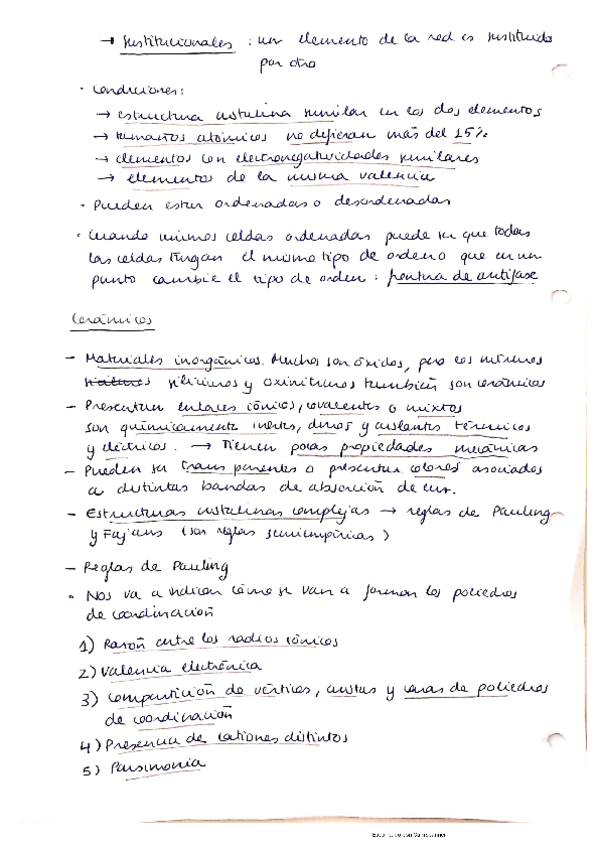 → Sustitucionales : un elemento de la red es sustituido
por otro
· Condiciones:
→ estructura cristalina similar en los dos elementos
→ tamaños atómicos no difieran más del 15%
→ elementos con electronegatividades similares
→ elementos de la misma valencia
· Pueden estar ordenadas o desordenadas
· Cuando unimos celdas ordenadas puede ser que todas
las celdas tengan el mismo tipo de orden o que en un
punto cambie el tipo de orden : frontura de antifase
Cerámicos
- Materiales inorgánicos. Muchos son óxidos, pero los nitruros
siliciuros y oxinitruros también son cerámicos
- Presentan enlaces iónicos, covalentes o mixtos
son químicamente inertes, duros y aislantes térmicos
y eléctricos. → Tienen pocas propiedades mecánicas
- Pueden ser transparentes o presentar colores asociados
a distintas bandas de absorción de luz.
- Estructuras cristalinas complejas → reglas de Pauling
y Fajans (son reglas semiempíricas)
- Reglas de Pauling
• Nos va a indicar cómo se van a formar los poliedros
de coordinación
1) Razón entre los radios iónicos
2) Valencia electrónica
3) Compartición de vértices, aristas y caras de poliedros
de coordinación
4) Presencia de cationes distintos
5) Parsimonia